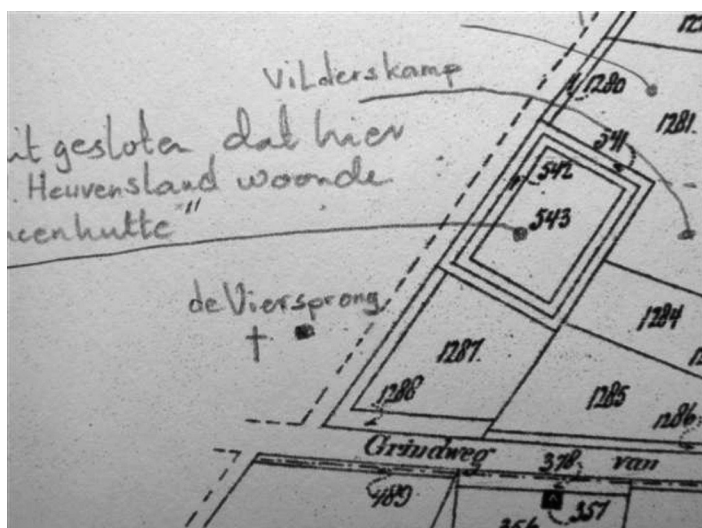 Vilderskamp
gesloten dat hier
Heuvensland woonde
de Viersprong
1280
1281.
541
542
543
1284
1287.
1288
1285
1286
Grindweg van
378
489
357